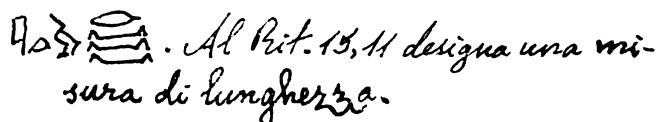 . Al Rit. 15, 11 designa una mi-
sura di lunghezza.